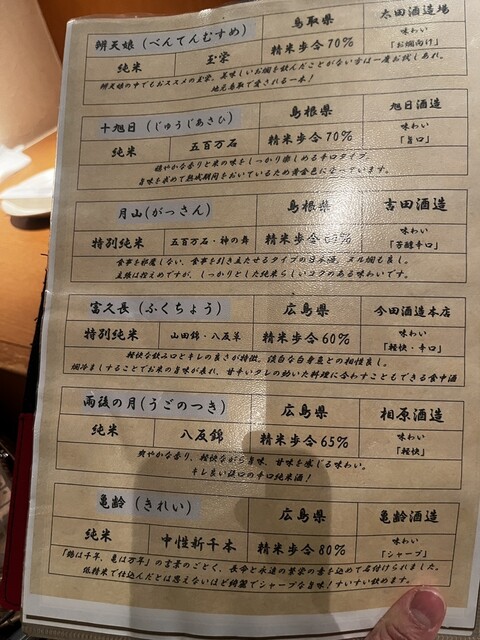 辨天娘（べんてんむすめ） 鳥取県 太田酒造場
純米 玉栄 精米歩合70% 味わい「お燗向け」
辨天娘の中でもおススメの玉栄、美味しいお燗を飲んだことがない方は一度お試しあれ。
地元鳥取で愛される一本！
十旭日（じゅうじあさひ） 島根県 旭日酒造
純米 五百万石 精米歩合70% 味わい「旨口」
穏やかな香りと米の味をしっかり楽しめる辛口タイプ。
旨味を求めて熟成期間をおいているため黄金色になっています。
月山（がっさん） 島根県 吉田酒造
特別純米 五百万石・神の舞 精米歩合 味わい「芳醇辛口」
食事を邪魔しない、食事を引き立たせるタイプの日本酒。ヌル燗も良し。
主張は控えめですが、しっかりとした純米らしいコクのある味わいです。
富久長（ふくちょう） 広島県 今田酒造本店
特別純米 山田錦・八反草 精米歩合60% 味わい「軽快・辛口」
軽快な飲み口とキレの良さが特徴。淡白な白身魚との相性良し。
燗冷ましすることでお米の旨味が表れ、甘辛いタレの効いた料理に合わすこともできる食中酒
雨後の月（うごのつき） 広島県 相原酒造
純米 八反錦 精米歩合65% 味わい「軽快」
爽やかな香り、軽快ながら旨味、甘味を感じる味わい。
キレ良い淡口の辛口純米酒！
亀齢（きれい） 広島県 亀齢酒造
純米 中性新千本 精米歩合80% 味わい「シャープ」
「鶴は千年、亀は万年」の言葉のごとく、長命と永遠の繁栄の意を込めて名付けられました。
低精米で仕込んだとは思えないほど綺麗でシャープな旨味！すいすい飲めます。